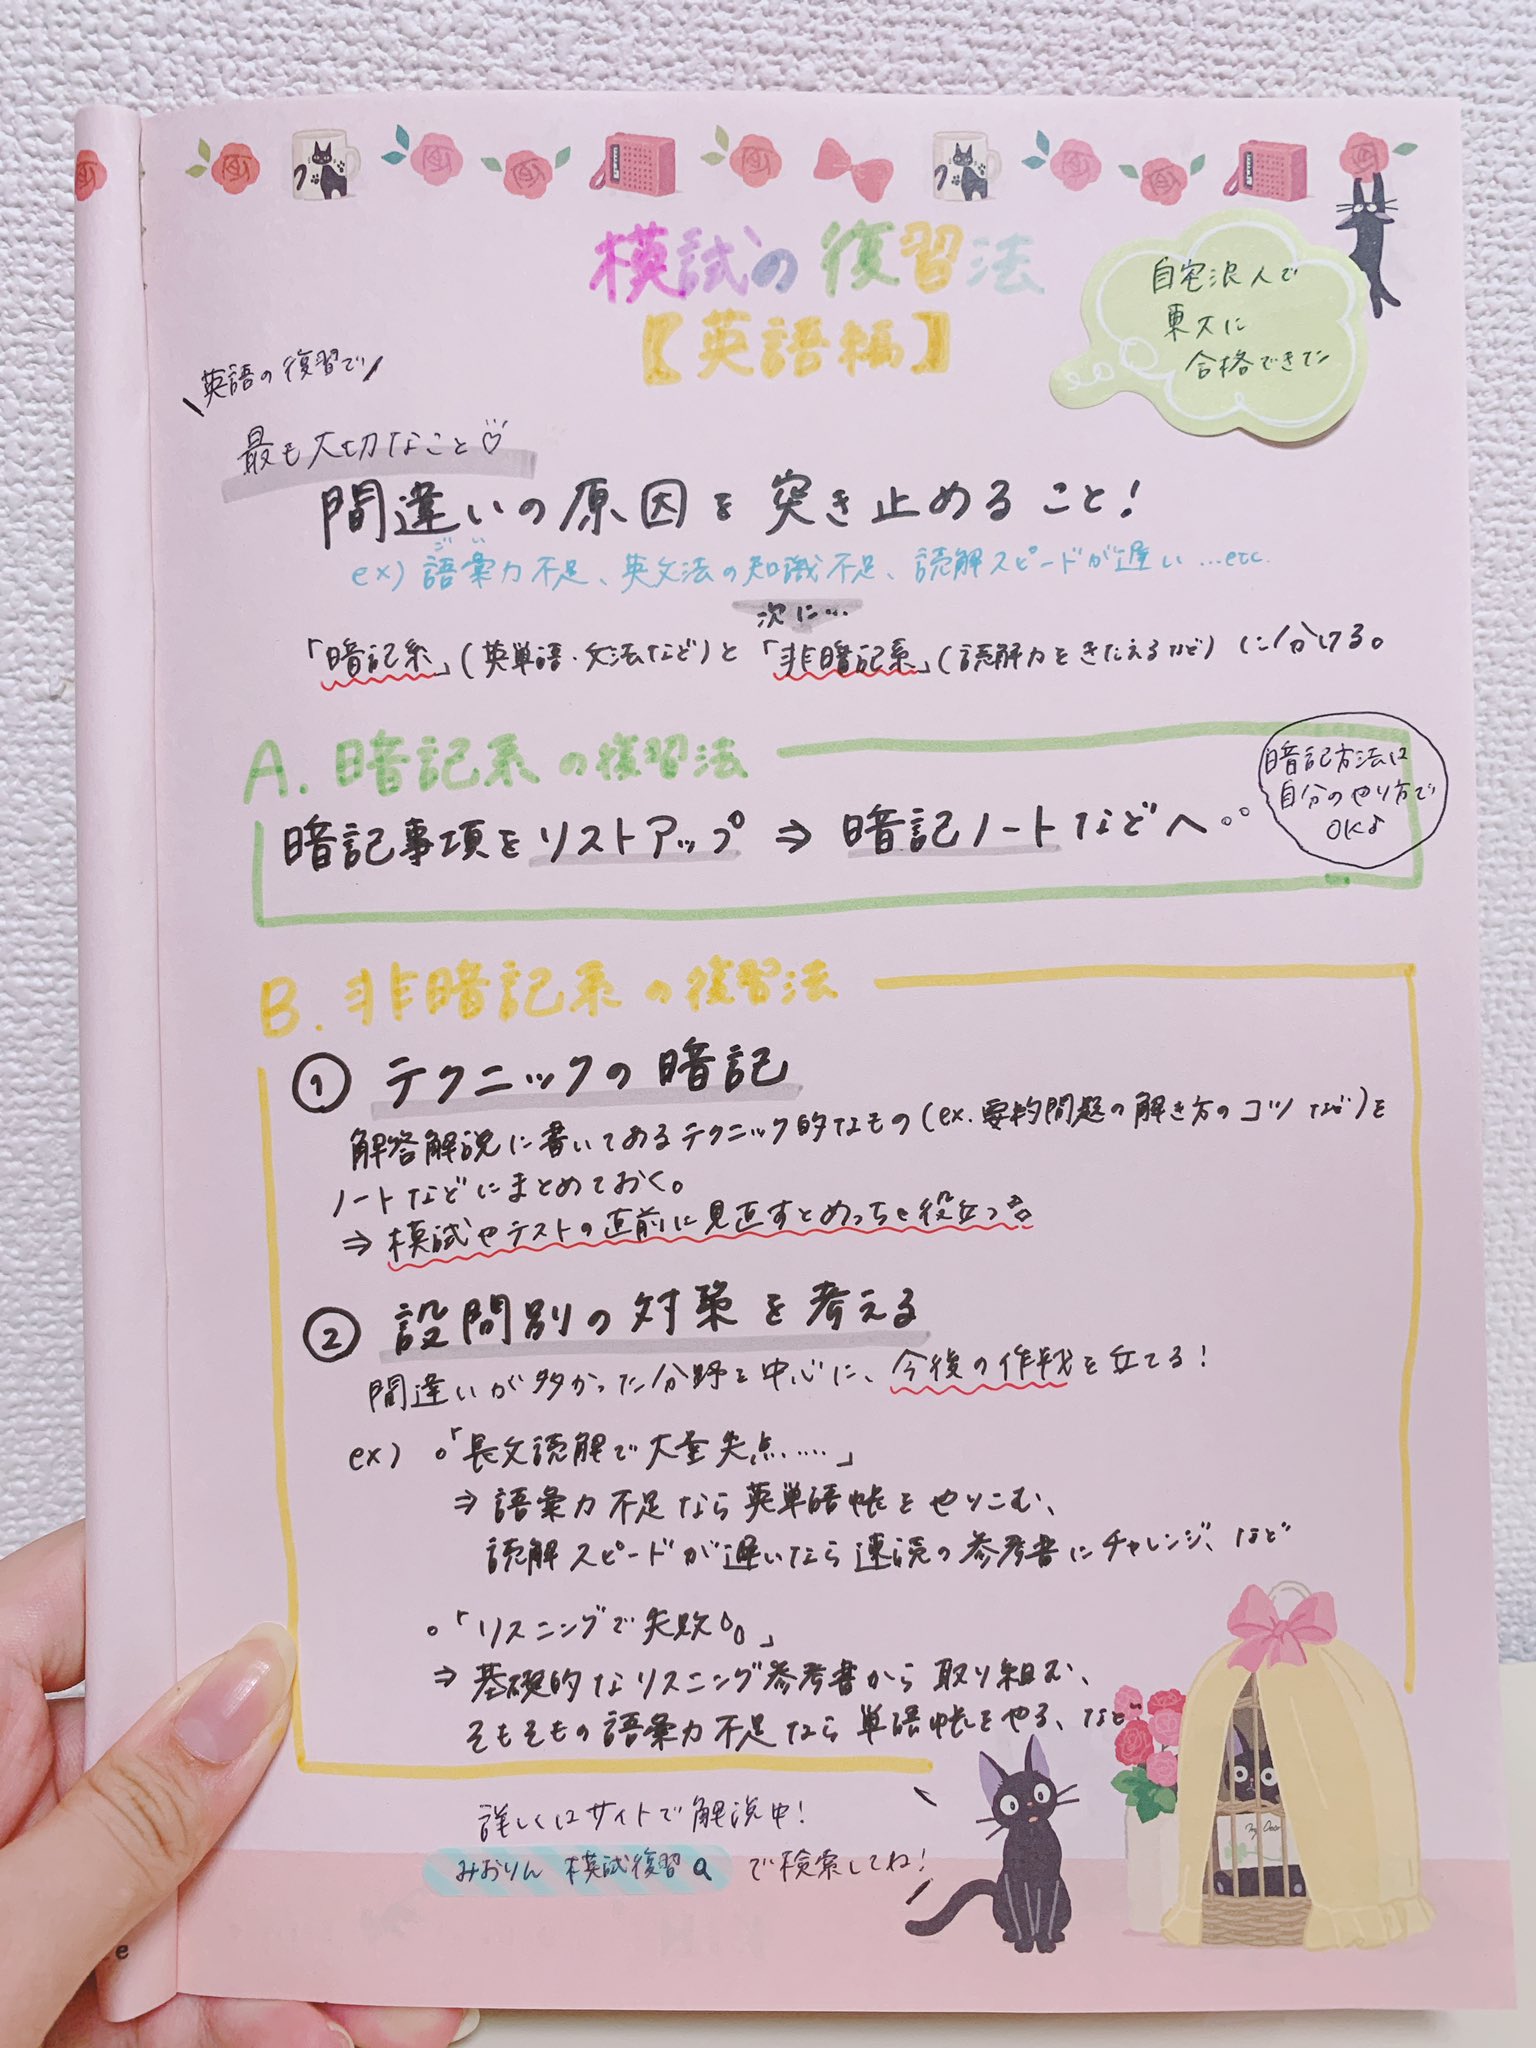 模試の復習法
【英語編】
自宅浪人で
東大に
合格できた
\英語の復習で/
最も大切なこと♡
間違いの原因を突き止めること!
ex) 語彙力不足、英文法の知識不足、読解スピードが遅い…etc.
ごい
次に…
「暗記系」(英単語・文法など)と「非暗記系」(読解力をきたえるなど)に分ける。
A. 暗記系の復習法
暗記事項をリストアップ ⇒ 暗記ノートなどへ
暗記方法は
自分のやり方で
OK♪
B. 非暗記系の復習法
① テクニックの暗記
解答解説に書いてあるテクニック的なもの(ex.要約問題の解き方のコツなど)を
ノートなどにまとめておく。
⇒ 模試やテストの直前に見直すとめっちゃ役立つ
② 設問別の対策を考える
間違いが多かった分野を中心に、今後の作戦を立てる!
ex) ・「長文読解で大量失点……」
⇒ 語彙力不足なら英単語帳をやりこむ、
読解スピードが遅いなら速読の参考書にチャレンジ、など
・「リスニングで失敗」
⇒ 基礎的なリスニング参考書から取り組む、
そもそもの語彙力不足なら単語帳をやる、など
詳しくはサイトで解説中!
みおりん 模試復習 で検索してね!